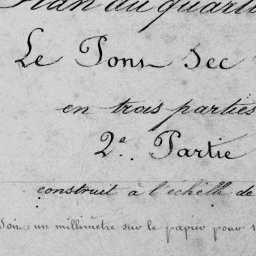 Plan du quarti
Le Pons Sec
en trois parties
2e. Partie
construit à l'échelle de
Soit un millimètre sur le papier pour